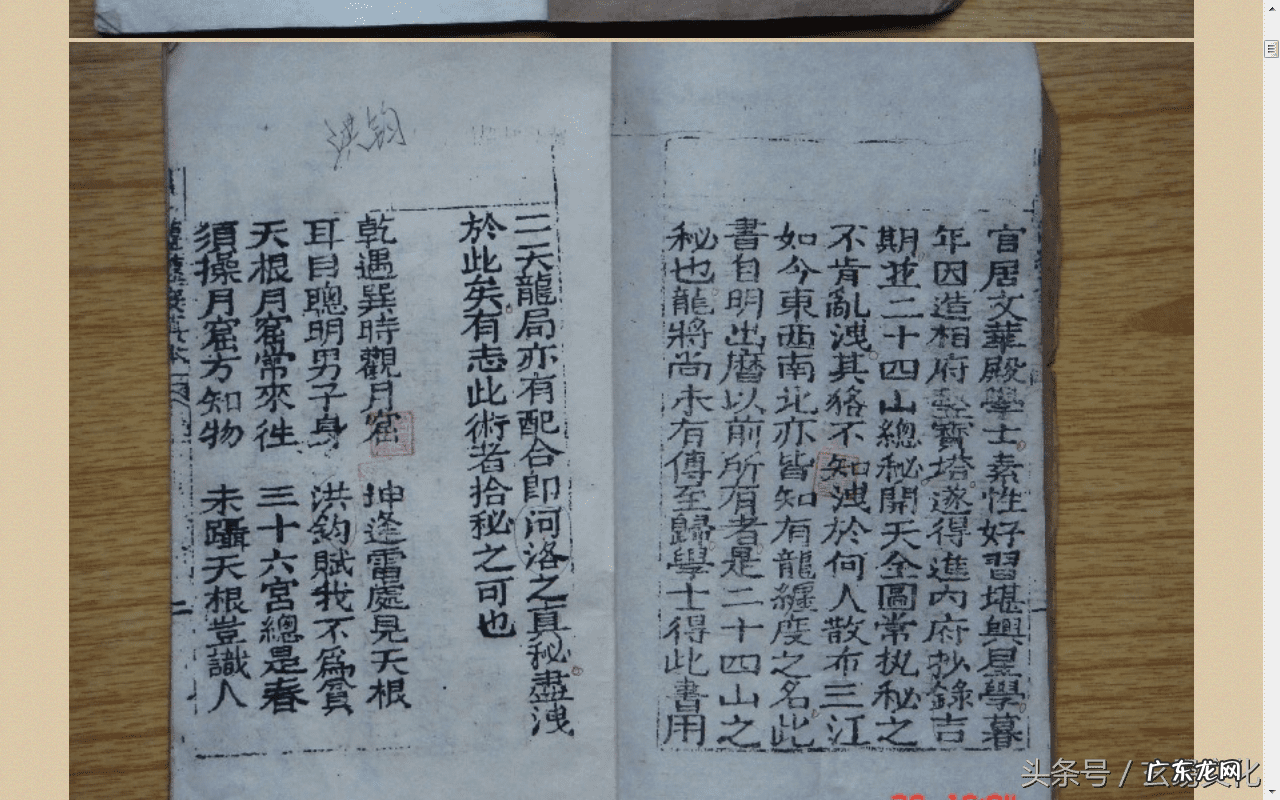 官居文華殿學士素性好習堪輿星學暮
年因造相府豎寶塔遂得進內府抄錄吉
期並二十四山總秘開天全圖常执秘之
不肯亂洩其臵不知洩於何人散布三江
如今東西南北亦皆知有龍纏度之名此
書自明出曆以前所有者是二十四山之
秘也龍將尚未有傳至歸學士得此書用
二天龍局亦有配合即河洛之真秘盡洩
於此矣有志此術者拾秘之可也
乾遇巽時觀月窟 坤逢雷處見天根
耳目聰明男子身 洪鈞賦我不為貧
天根月窟常來往 三十六宮總是春
須操月窟方知物 未躡天根豈識人
二
洪鈞
头条号 / 玄易文化
广东龙网